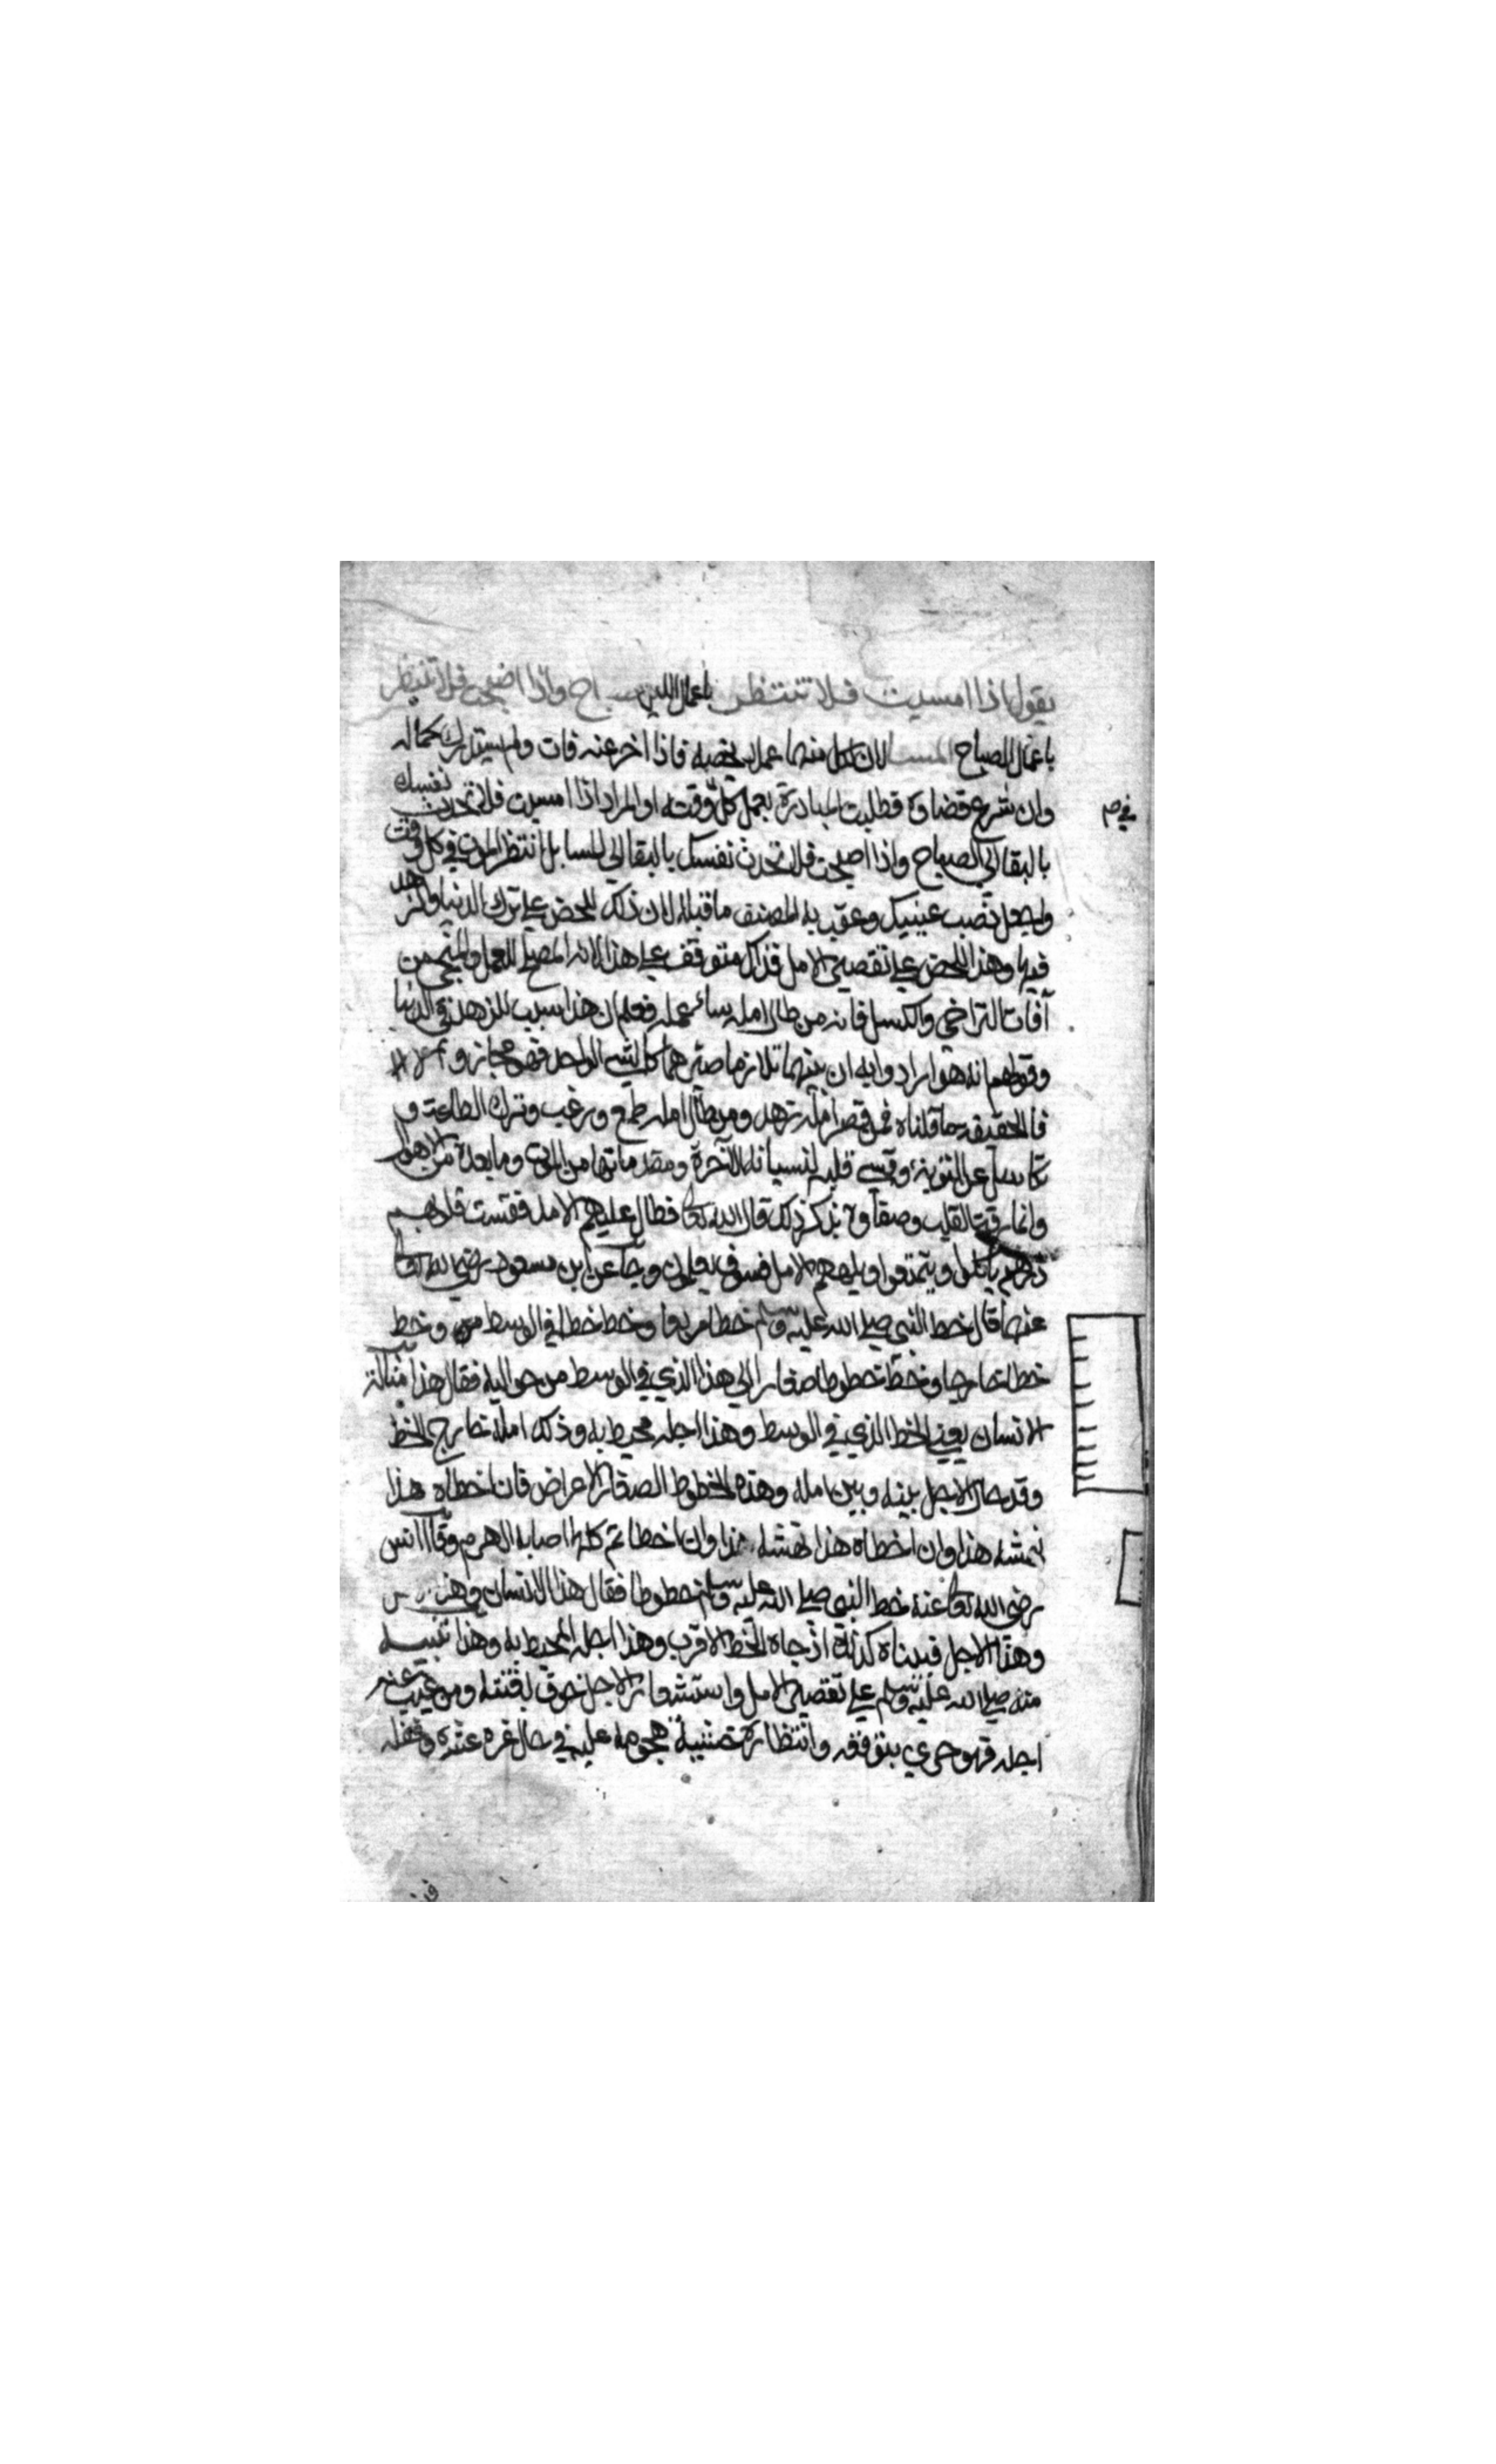 يقول اذا امسيت فلا تنتظر باعمال الليل الصباح واذا اصبحت فلا تنتظر
باعمال الصباح المسا لان لكل منهما عملا يخصه فاذا اخر عنه فات ولم يستدرك كماله
وان شرع قضاوه فطلبت المبادرة بعمل كل وقت او المراد اذا امسيت فلا تحدث نفسك
بالبقا الى الصباح واذا اصبحت فلا تحدث نفسك بالبقا الى المسا بل انتظر الموت في كل وقت
واجعل نصب عينيك وعقب به المصنف ما قبله لان ذلك للحض على ترك الدنيا والزهد
فيها وهذا للحض على تقصير الامل فذاك متوقف على هذا لانه المصلح للعمل والمنجي من
آفات التراخي والكسل فانه من طال امله ساء عمله فعلم ان هذا سبب للزهد في الدنيا
وقولهم انه هو ارادوا به ان بينهما تلازما صيرهما كالشي الواحد فهو مجاز والا
فالحقيقة ما قلناه فمن قصر امله زهد ومن طال امله طمع ورغب وترك الطاعة و
تكاسل عن التوبة وقسى قلبه لنسيانه الآخرة ومقدماتها من الموت وما بعده من الاهوال
وانما رقت القلب وصفاوه بذكر ذلك قال الله تعا فطال عليهم الامد فقست قلوبهم
ذرهم ياكلوا ويتمتعوا ويلههم الامل فسوف يعلمون وجا عن ابن مسعود رضي الله تعا
عنه قال خط النبي صلى الله عليه وسلم خطا مربعا وخط خطا في الوسط منه وخط
خطا خارجا وخط خطوطا صغارا الى هذا الذي في الوسط من حواليه فقال هذا
الانسان يعني الخط الذي في الوسط وهذا اجله محيط به وذلك امله خارج الخط
وقد حال الاجل بينه وبين امله وهذه الخطوط الصغار الاعراض فان اخطاه هذا
نهشه هذا وان اخطاه هذا نهشه هذا وان اخطاتم كلها اصابه الهرم وقال انس
رضي الله تعا عنه خط النبي صلى الله عليه وسلم خطوطا فقال هذا الانسان
وهذا الاجل فبيناه كذلك اذ جاه الخط الاقرب وهذا اجله المحيط به وهذا تنبيه
منه صلى الله عليه وسلم على تقصير الامل واستشعار الاجل خوف بغتته ومن غيب عنه
اجله فهو حري بتوقعه وانتظاره خشية هجومه عليه في حال غره وغفله